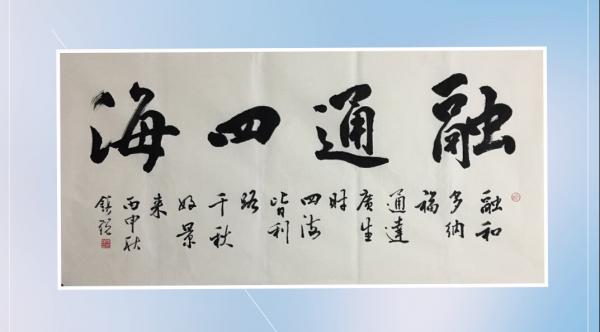 融通四海
融和
多纳
福
通達
廣生
财
四海
皆利
路
千秋
好景
来
丙申秋